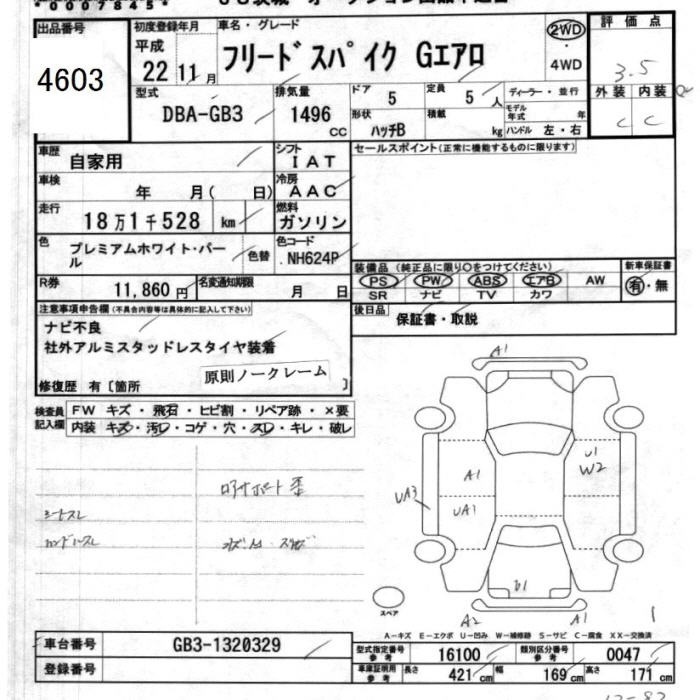 *00078455*
出品番号
4603
初度登録年月
平成
22 11 月
車名・グレード
フリードスパイク Gエアロ
2WD
4WD
評価点
3.5
外装 内装
C C
型式
DBA-GB3
排気量
1496 cc
ドア 5
定員 5 人
形状 ハッチB
積載 kg
ディーラー・並行
モデル年式 年
ハンドル 左・右
車歴
自家用
シフト
IAT
車検
年 月( 日)
冷房
AAC
走行
18万1千528 km
燃料
ガソリン
色
プレミアムホワイト・パール
色替
色コード
.NH624P
R券
11,860 円
名変通知期限
月 日
セールスポイント(正常に機能するものに限ります)
装備品(純正品に限り○をつけてください)
PS PW ABS エアB AW
SR ナビ TV カワ
新車保証書
有・無
後日品
保証書・取説
注意事項申告欄(不具合内容等は具体的に記入して下さい)
ナビ不良
社外アルミスタッドレスタイヤ装着
原則ノークレーム
修復歴 有〔箇所 〕
検査員記入欄
FW キズ・飛石・ヒビ割・リペア跡・×要
内装 キズ・汚レ・コゲ・穴・スレ・キレ・破レ
シートスレ
ハンドルスレ
A1
U1
W2
A1
UA3
UA1
U1
A2
A1
スペア
A-キズ E-エクボ U-凹み W-補修跡 S-サビ C-腐食 XX-交換済
車台番号
GB3-1320329
登録番号
型式指定番号 参考 16100
類別区分番号 参考 0047
車庫証明用 参考 長さ 421 cm 幅 169 cm 高さ 171 cm